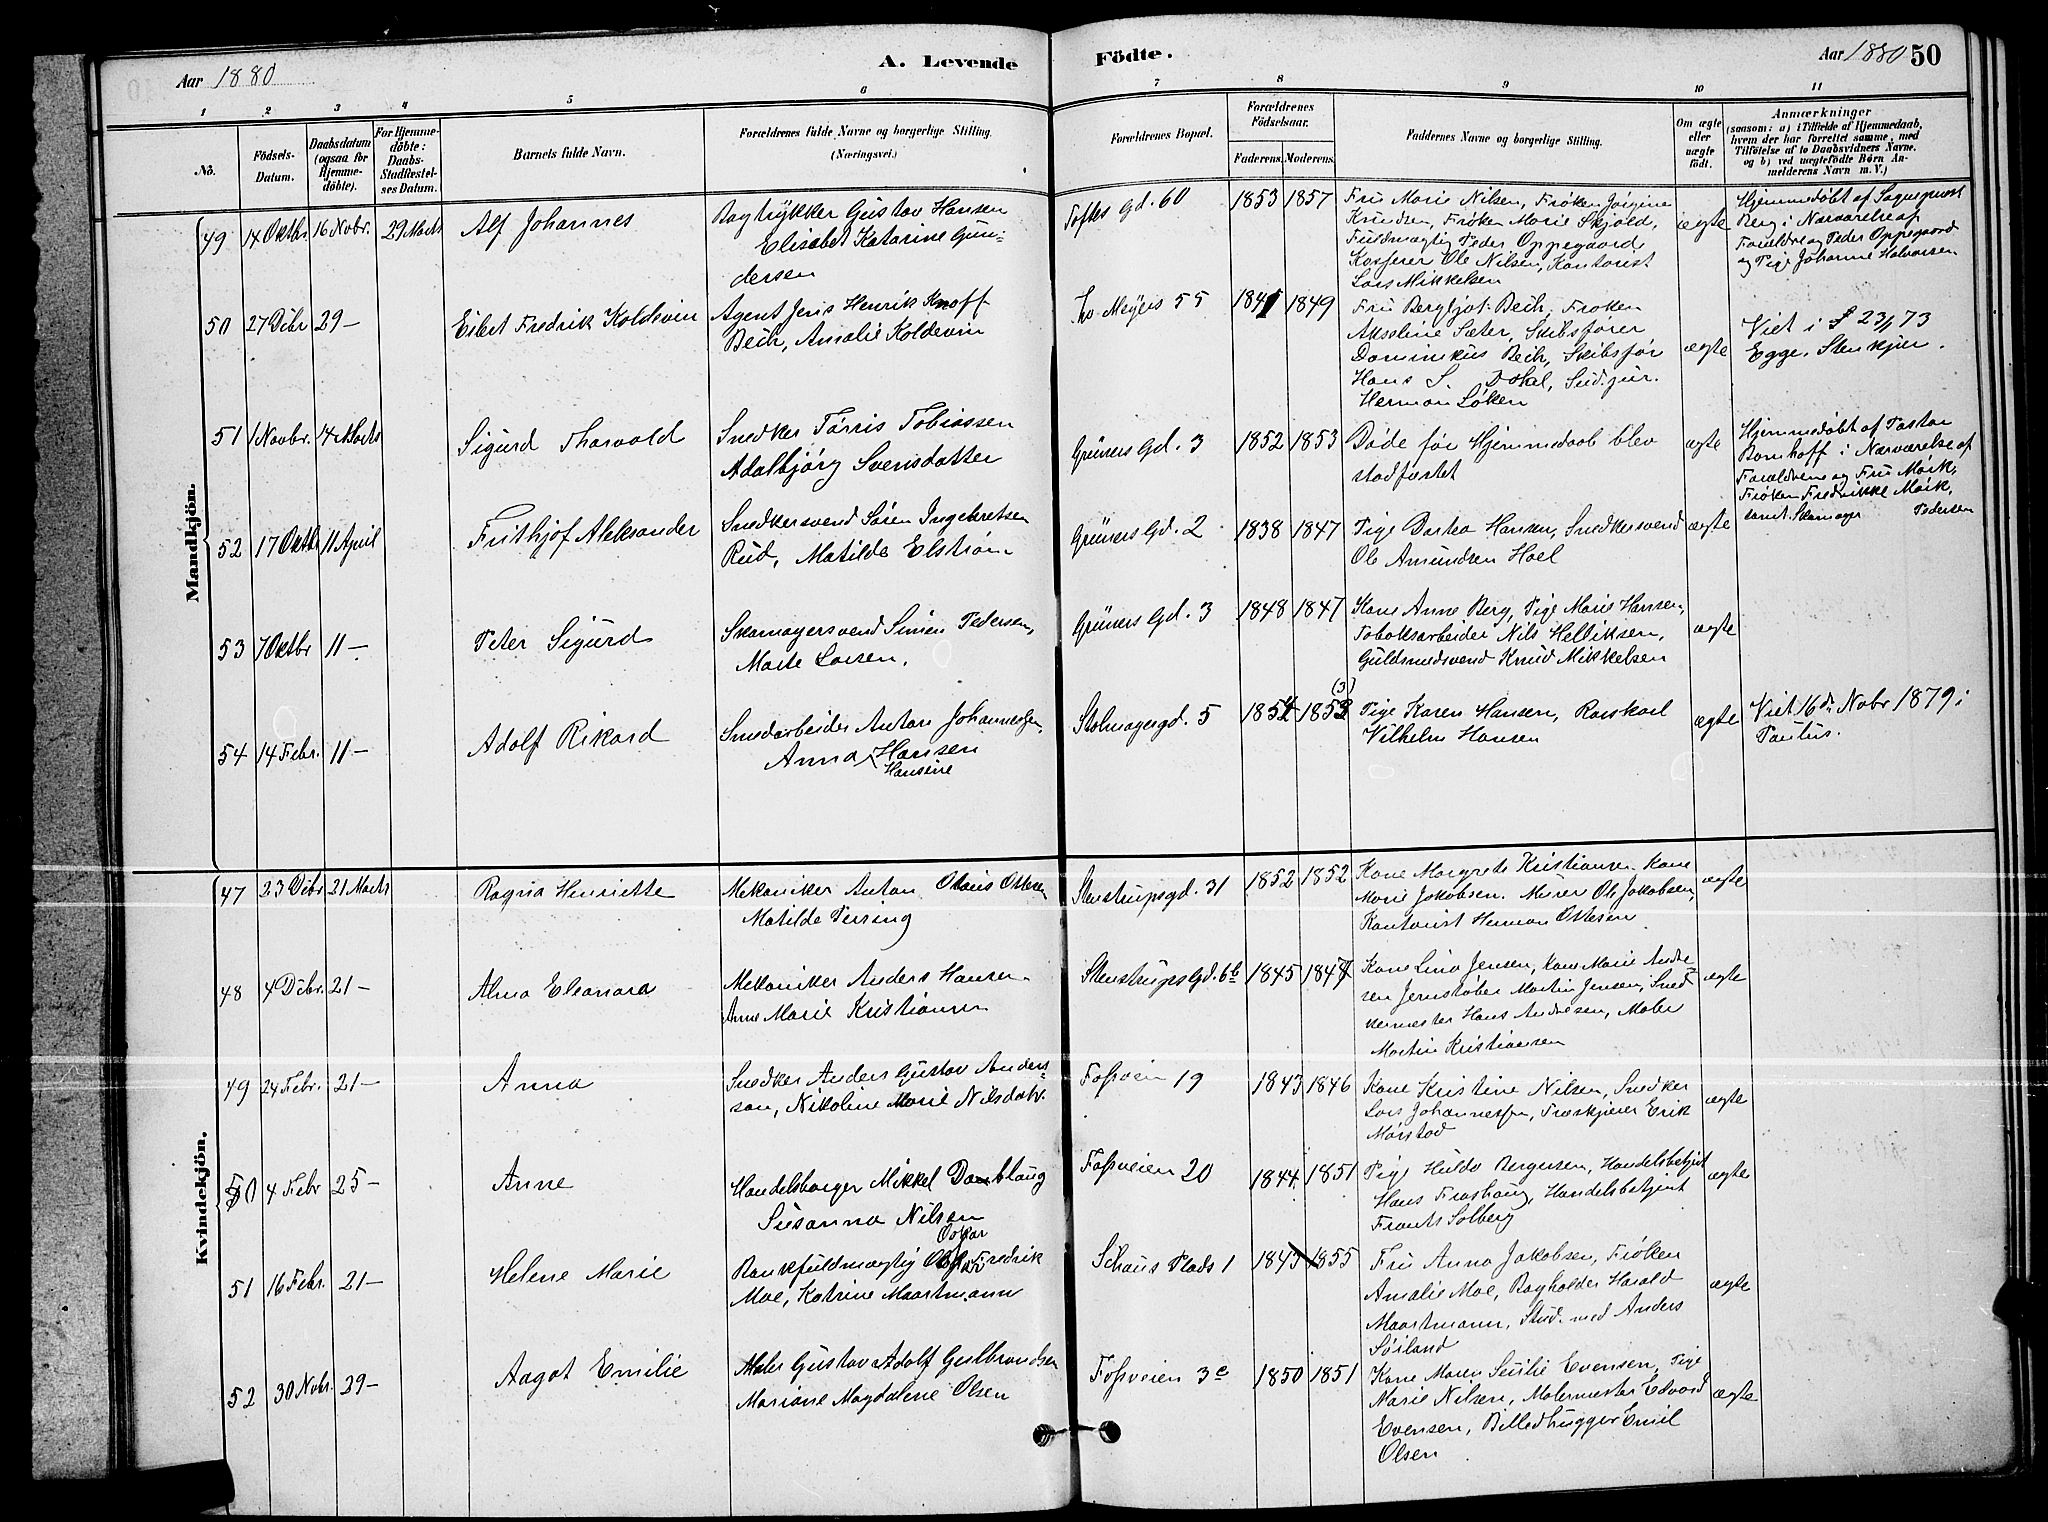 Aar 1880
A. Levende
Födte.
Aar 1880 50
1 2 3 4 5 6 7 8 9 10 11
No.
Födsels-
Datum.
Daabsdatum
(ogsaa for
Hjemme-
döbte).
For Hjemme-
döbte:
Daabs-
Stadfæstel-
ses Datum.
Barnets fulde Navn.
Forældrenes fulde Navne og borgerlige Stilling.
(Næringsvei.)
Forældrenes Bopæl.
Forældrenes
Födselsaar.
Faderens. Moderens.
Faddernes Navne og borgerlige Stilling.
Om ægte
eller
uægte
födt.
Anmærkninger
(saasom: a) i Tilfælde af Hjemmedaab,
hvem der har forrettet samme, med
Tilföielse af to Daabsvidners Navne.
og b) ved uægtefödte Börn An-
melderens Navn m. V.)
Mandkjön.
49 14 Oktbr. 16 Novbr. 29 Marts
Alf Johannes
Bogtrykker Gustav Hansen
Elisabet Katarine Gun-
dersen
Toftes Gd. 60
1853 1857
Fru Marie Nilsen, Frøken Jørgine
Knudsen, Frøken Marie Skjold,
Fuldmægtig Peder Oppegaard
Kasserer Ole Nilsen, Kontorist
Lars Mikkelsen
ægte
Hjemmedøbt af Sogneprest
Berg i Nærværelse af
Forældre og Peder Oppegaard
og Pige Johanne Halvorsen
50 27 Debr 29 –
Eibert Fredrik Koldevin
Agent Jens Henrik Knoff
Bech, Amalie Koldevin
Thv. Meyers 55
1841 1849
Fru Bergljot Bech, Frøken
Akseline Sæter, Skibsfører
Dominikus Bech, Skibsfør
Hans S. Dahl,
Herman Løken
ægte
Viet i 73
Egge. Stenkjær.
51 1 Novbr. 14 Marts
Sigurd Thorvald
Snedker Tørris Tobiassen
Adalbjørg Svensdatter
Grüners Gd. 3
1852 1853
Døde før Hjemmedaab blev
stadfæstet
ægte
Hjemmedøbt af Pastor
Bomhoff i Nærværelse af
Forældrene og Fru Mørk,
Frøken Fredrikke Mørk,
samt Skomager Pedersen
52 17 Oktbr 11 April
Frithjof Aleksander
Snedkersvend Søren Ingebretsen
Rud, Matilde Elstrøm
Grüners Gd. 2
1838 1847
Pige Dortea Hansen, Snedkersvend
Ole Amundsen Hoel
ægte
53 7 Oktbr 11 –
Peter Sigurd
Skomagersvend Simen Pedersen,
Marte Larsen.
Grüners Gd. 3
1848 1847
Kone Anne Berg, Pige Marie Hansen,
Tobaksarbeider Nils Helliksen,
Guldsmedsvend Knud Mikkelsen
ægte
54 14 Febr. 11 –
Adolf Rikard
Smedarbeider Anton Johannesen,
Anna Hansen
Hansine
Stolmagergd. 5
1854 1853
(3)
Pige Karen Hansen,
Vilhelm Hansen
ægte
Viet 16de Nobr 1879 i
Paulus.
Kvindekjön.
47 23 Debr 21 Marts
Ragna Henriette
Mekaniker Anton Olaus Ottesen
Matilde
Stenstrupsgd. 31
1852 1852
Kone Margrete Kristiansen. Kone
Marie Jakobsen. Murer Ole Jakobsen,
Kontorist Herman Ottesen
ægte
48 4 Debr. 21 –
Alma Eleonora
Mekaniker Anders Hansen
Anne Marie Kristiansen
Stenstrupsgd. 6b
1845 1847
Kone Lina Jensen, Kone Marie Andre
sen Jernstøber Martin Jensen, Sned
kermester Hans Andresen, Maler
Martin Kristiansen
ægte
49 24 Febr. 21 –
Anna
Snedker Anders Gustav Anders-
son, Nikoline Marie Nilsdatr.
Fossveien 19
1843 1846
Kone Kristine Nilsen, Snedker
Lars Johannessen, Træskjærer Erik
Mørstad
ægte
50 4 Febr 25 –
Anne
Handelsborger Mikkel Domblaug
Susanna Nilsen
Fossveien 20
1844. 1851
Pige Hulda Bergersen, Handelsbetjent
Hans Frøshaug, Handelsbetjent
Frants Solberg
ægte
51 16 Febr. 21 –
Helene Marie
Oskar
Bankfuldmægtig Fredrik
Moe, Katrine Maartmann
Schous Plads 1
1843 1855
Fru Anna Jakobsen, Frøken
Amalie Moe, Bogholder Harald
Maartmann, Stud. med Anders
Søiland
ægte
52 30 Nobr. 29 –
Aagot Emilie
Maler Gustav Adolf Gulbrandsen
Mariane Magdalene Olsen
Fossveien 3c
1850 1851
Kone Maren Evensen, Pige
Marie Nilsen, Malermester Edvard
Evensen, Billedhugger Emil
Olsen
ægte